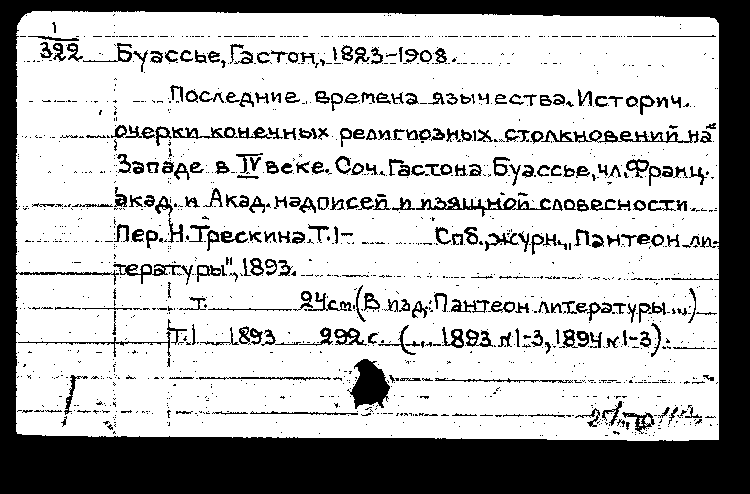 1
322 Буассье, Гастон, 1823-1908.
Последние времена язычества. Историч.
очерки конечных религиозных столкновений на
Западе в IV веке. Соч. Гастона Буассье, чл. Франц.
акад. и Акад. надписей и изящной словесности
Пер. Н. Трескина. Т. I- Спб., журн. „Пантеон ли-
тературы", 1893.
т. 24 см. (В изд.: Пантеон литературы...)
Т. I 1893 292 с. (... 1893 №1-3, 1894 №1-3).